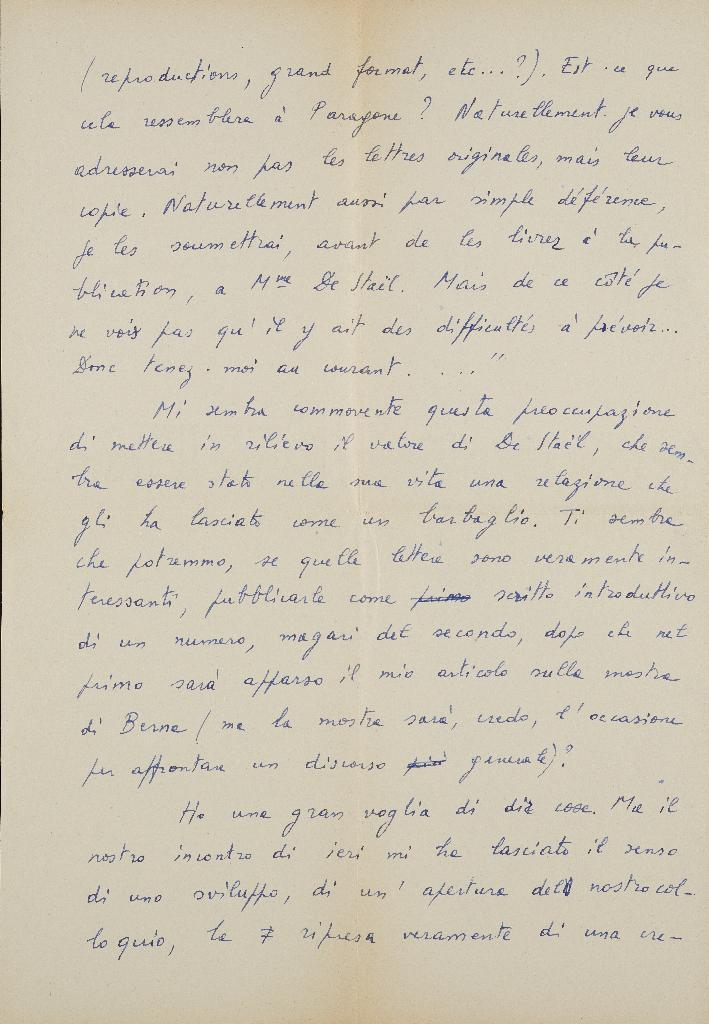 (reproductions, grand format, etc...?). Est-ce que
cela ressemblera à Paragone? Naturellement je vous
adresserai non pas les lettres originales, mais leur
copie. Naturellement aussi par simple déférence,
je les soumettrai, avant de les livrer à la pu-
blication, a Mme De Staël. Mais de ce côté je
ne vois pas qu'il y ait des difficultés à prévoir...
Donc tenez-moi au courant. ...."
Mi sembra commovente questa preoccupazione
di mettere in rilievo il valore di De Staël, che sem-
bra essere stato nella sua vita una relazione che
gli ha lasciato come un barbaglio. Ti sembra
che potremmo, se quelle lettere sono veramente in-
teressanti, pubblicarle come primo scritto introduttivo
di un numero, magari del secondo, dopo che nel
primo sarà apparso il mio articolo sulla mostra
di Berna (ma la mostra sarà, credo, l'occasione
per affrontare un discorso più generale)?
Ho una gran voglia di dir cose. Ma il
nostro incontro di ieri mi ha lasciato il senso
di uno sviluppo, di un'apertura del nostro col-
loquio, la ripresa veramente di una cre-